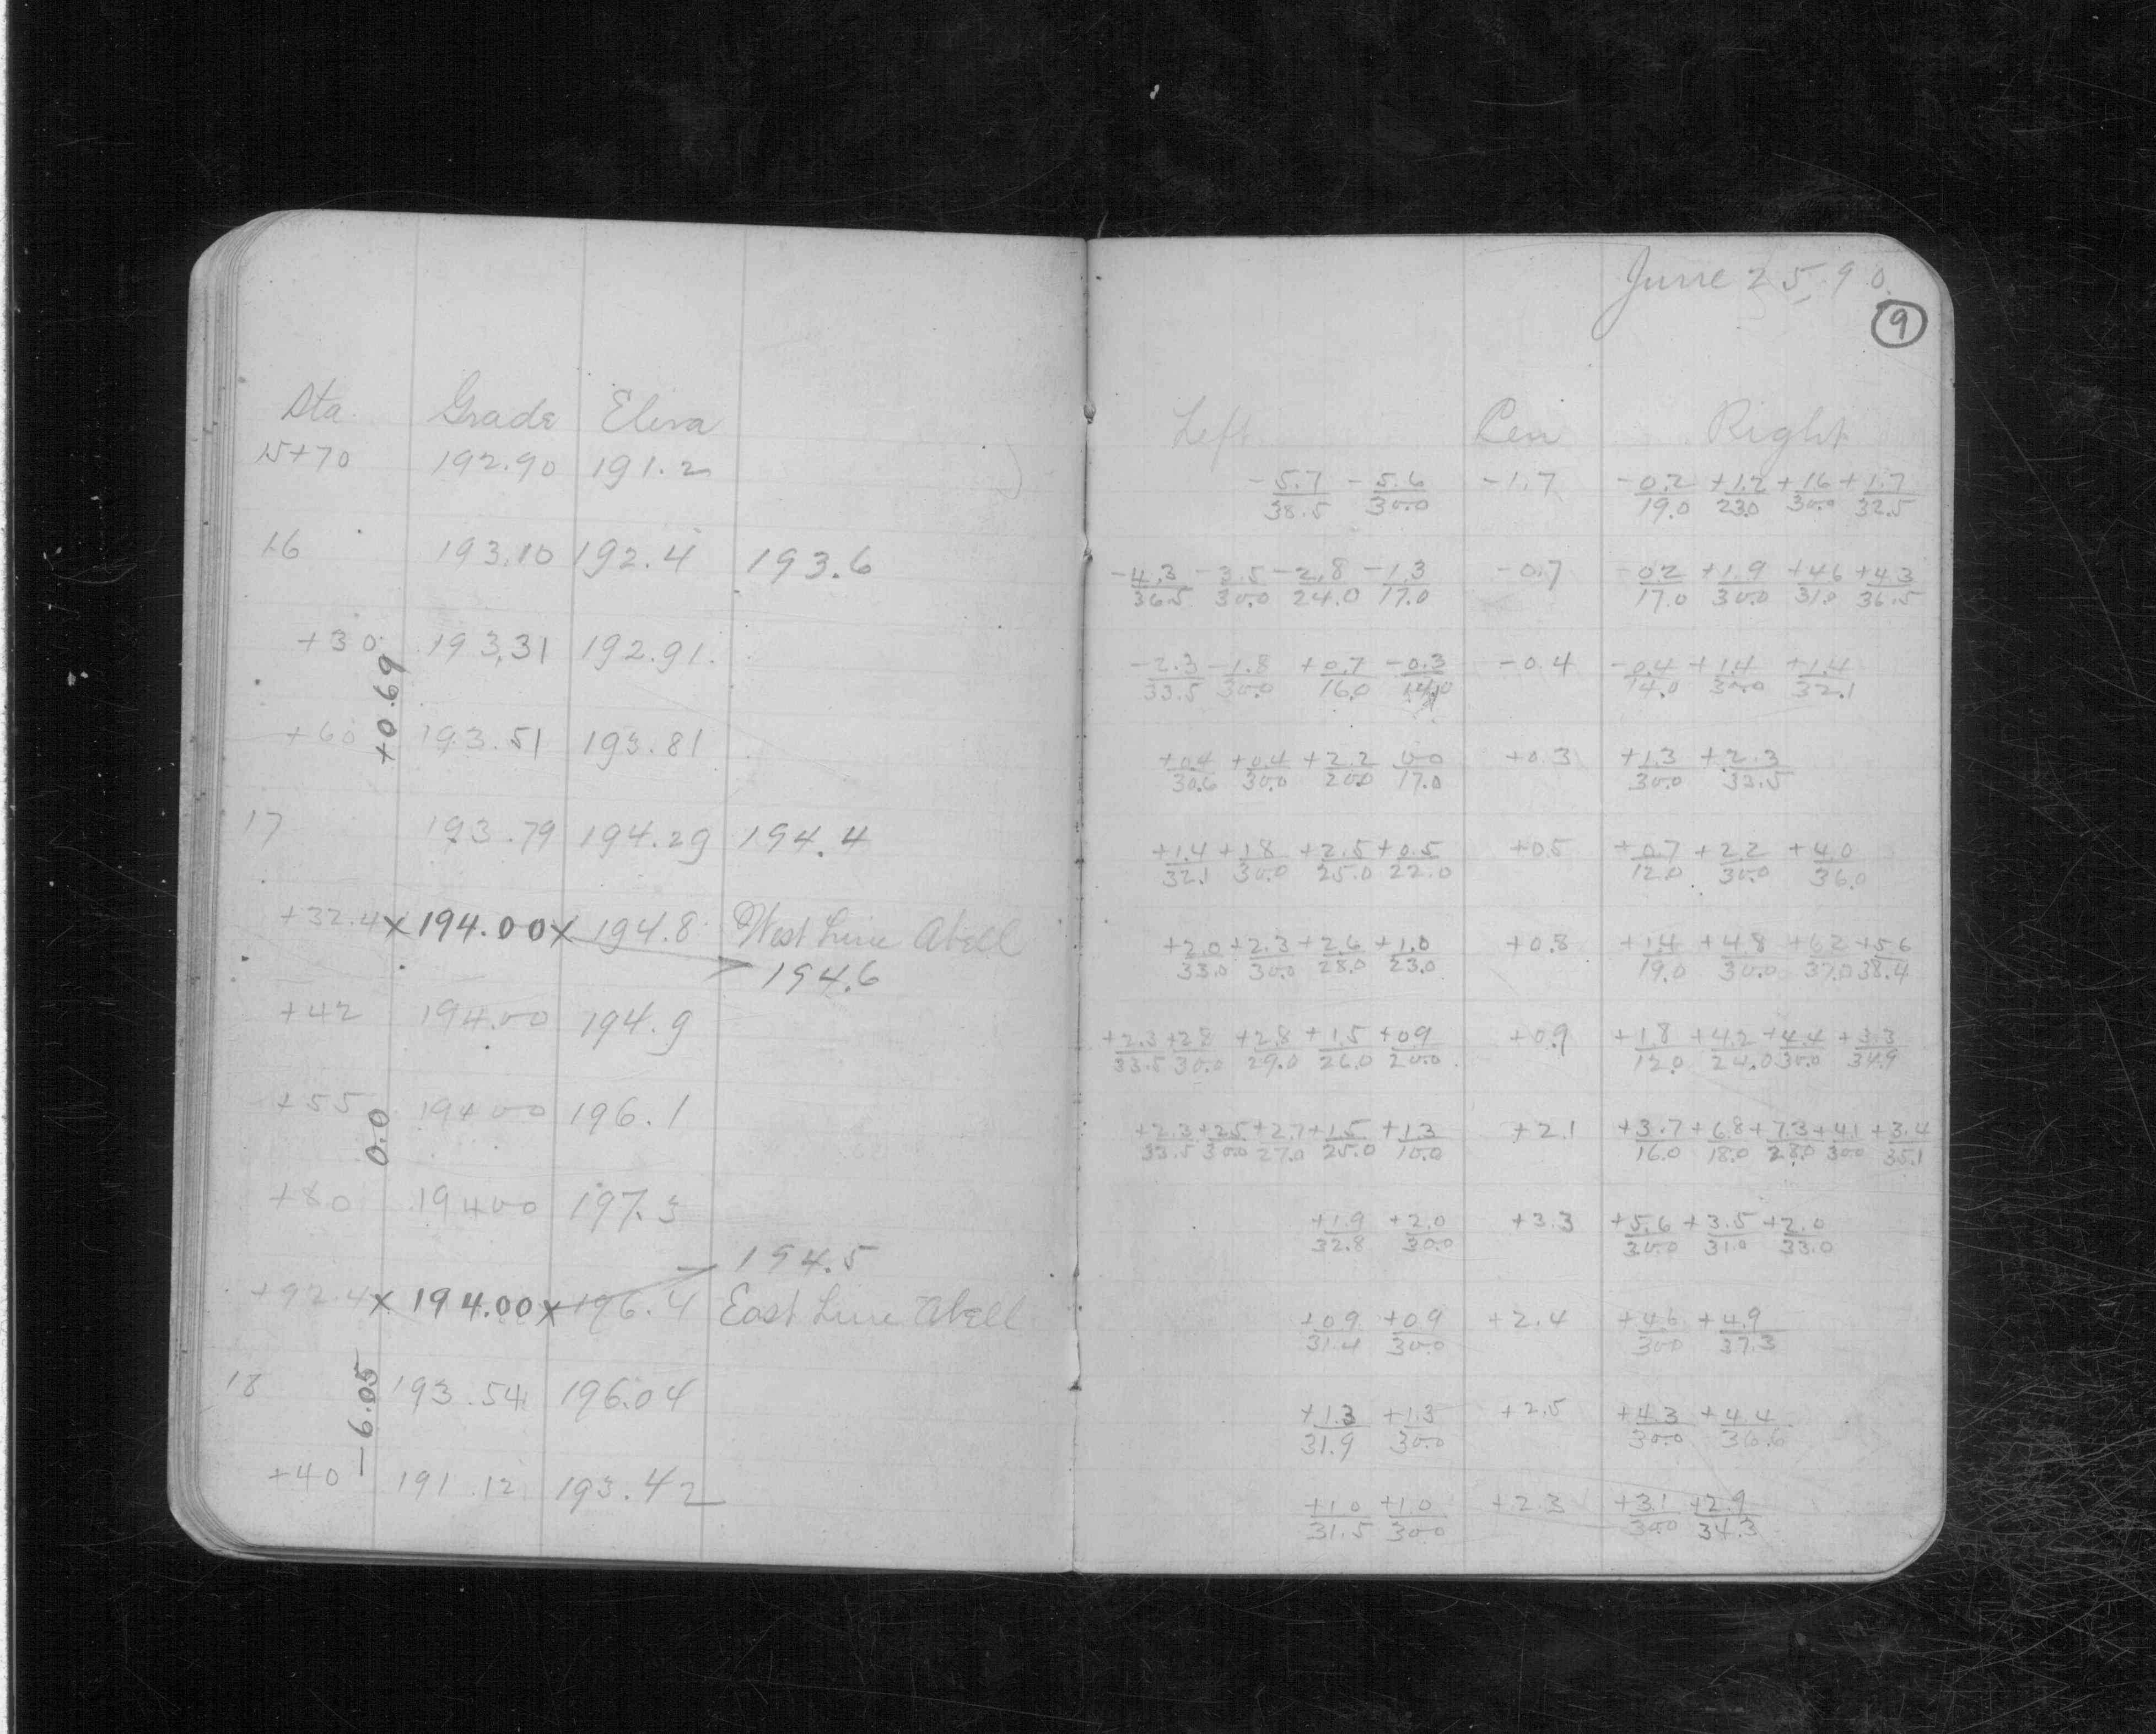 Sta. Grade Eleva
15+70 192.90 191.2
16 193.10 192.4 193.6
+30 193.31 192.91
+0.69
+60 193.51 193.81
17 193.79 194.29 194.4
+32.4 x 194.00 x 194.8 West Line Abell
194.6
+42 194.00 194.9
+55 194.00 196.1
0.0
+80 194.00 197.3
194.5
+92.4 x 194.00 x 196.4 East Line Abell
18 193.54 196.04
-6.05
+40 191.12 193.42
June 25, 90.
9
Left Cen Right
-5.7/38.5 -5.6/30.0 -1.7 -0.2/19.0 +1.2/23.0 +1.6/30.0 +1.7/32.5
-4.3/36.5 -3.5/30.0 -2.8/24.0 -1.3/17.0 -0.7 -0.2/17.0 +1.9/30.0 +4.6/31.0 +4.3/36.5
-2.3/33.5 -1.8/30.0 +0.7/16.0 -0.3/14.0 -0.4 -0.4/14.0 +1.4/30.0 +1.4/32.1
+0.4/30.6 +0.4/30.0 +2.2/20.0 0.0/17.0 +0.3 +1.3/30.0 +2.3/33.5
+1.4/32.1 +1.8/30.0 +2.5/25.0 +0.5/22.0 +0.5 +0.7/12.0 +2.2/30.0 +4.0/36.0
+2.0/33.0 +2.3/30.0 +2.6/28.0 +1.0/23.0 +0.8 +1.4/19.0 +4.8/30.0 +6.2/37.0 +5.6/38.4
+2.3/33.5 +2.8/30.0 +2.8/29.0 +1.5/26.0 +0.9/20.0 +0.9 +1.8/12.0 +4.2/24.0 +4.4/30.0 +3.3/34.9
+2.3/33.5 +2.5/30.0 +2.7/27.0 +1.5/25.0 +1.3/10.0 +2.1 +3.7/16.0 +6.8/18.0 +7.3/28.0 +4.1/30.0 +3.4/35.1
+1.9/32.8 +2.0/30.0 +3.3 +5.6/30.0 +3.5/31.0 +2.0/33.0
+0.9/31.4 +0.9/30.0 +2.4 +4.6/30.0 +4.9/37.3
+1.3/31.9 +1.3/30.0 +2.5 +4.3/30.0 +4.4/36.6
+1.0/31.5 +1.0/30.0 +2.3 +3.1/30.0 +2.9/34.3